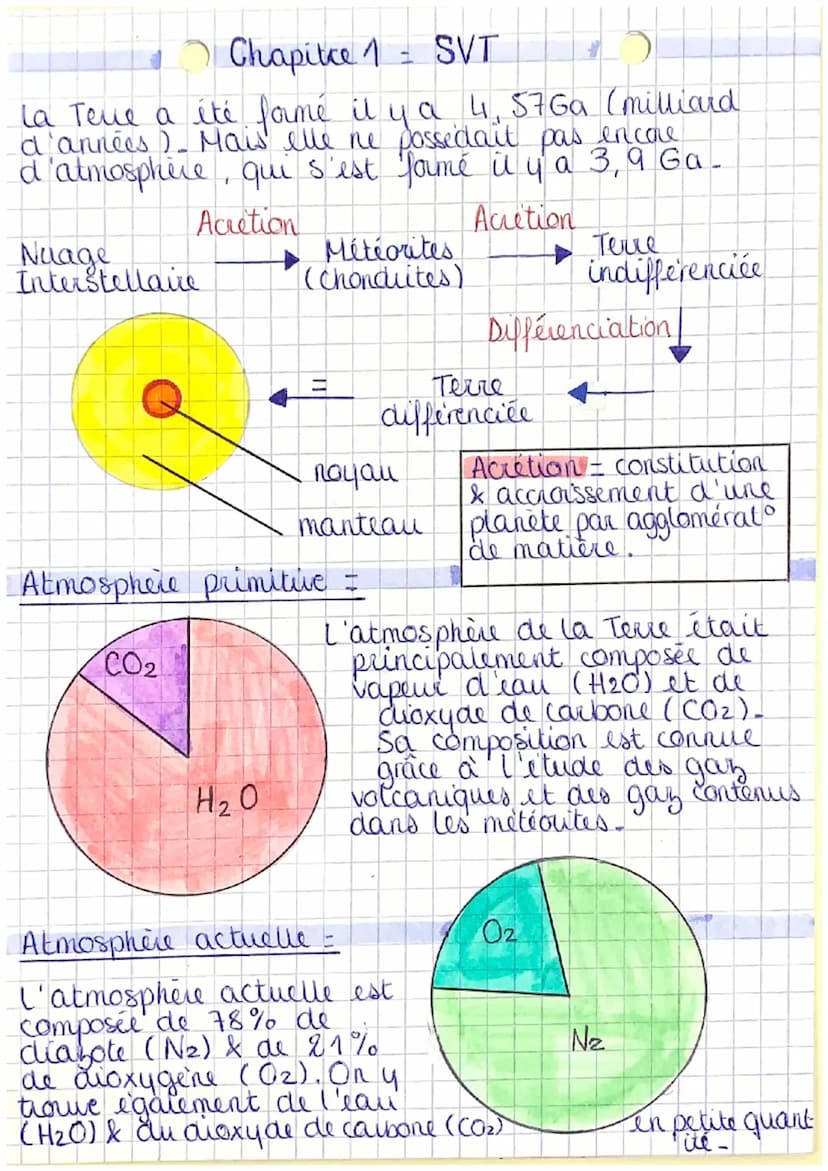 Chapitre 1 = SVT
La Terre a été formé il y a 4,57Ga (milliard
d'années). Mais elle ne possédait pas encore
d'atmosphère, qui s'est formé il y a 3,9 Ga.
Acrétion Acrétion
Nuage Météorites Terre
Interstellaire (chondrites) indifférenciée
Différenciation
= Terre
différenciée
noyau
manteau
Acrétion = constitution
& accroissement d'une
planète par agglomérat°
de matière.
Atmosphère primitive =
CO2
H2O
L'atmosphère de la Terre était
principalement composée de
vapeur d'eau (H2O) et de
dioxyde de carbone (CO2).
Sa composition est connue
grâce à l'étude des gaz
volcaniques et des gaz contenus
dans les météorites.
Atmosphère actuelle =
O2
N2
L'atmosphère actuelle est
composée de 78% de
diazote (N2) & de 21%
de dioxygène (O2). On y
trouve également de l'eau
(H2O) & du dioxyde de carbone (CO2) en petite quant
ité.